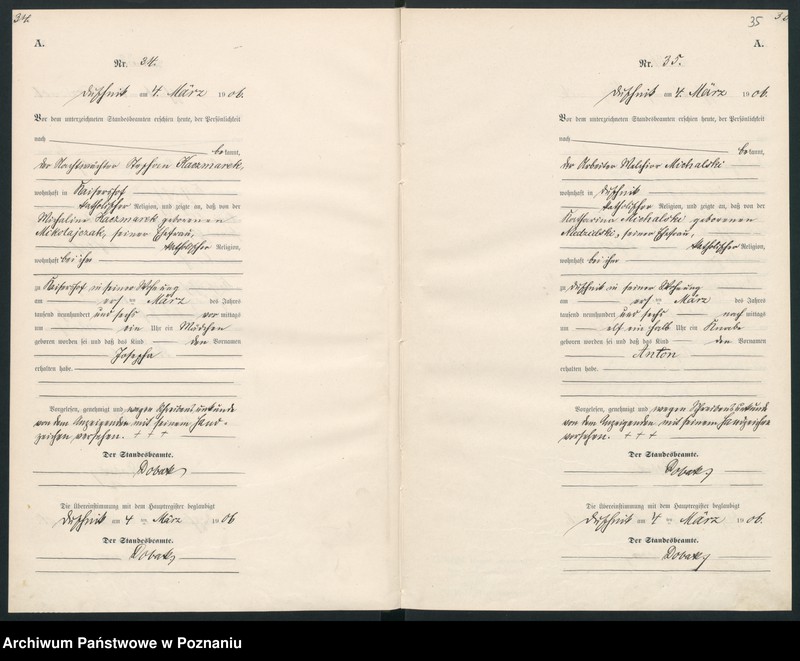 34.
A.
Nr. 34.
Duschnik am 4. März 1906.
Vor dem unterzeichneten Standesbeamten erschien heute, der Persönlichkeit
nach
bekannt,
der Nachtwächter Stephan Kaczmarek,
wohnhaft in Kaisershof
katholischer Religion, und zeigte an, daß von der
Michalina Kaczmarek geborenen
Mikolajczak, seiner Ehefrau,
katholischer Religion,
wohnhaft bei ihm
zu Kaisershof in seiner Wohnung
am ersten März des Jahres
tausend neunhundert und sechs vormittags
um ein Uhr ein Mädchen
geboren worden sei und daß das Kind den Vornamen
Josepha
erhalten habe.
Vorgelesen, genehmigt und wegen Schreibensunkunde
von dem Anzeigenden mit seinem Hand-
zeichen versehen. + + +
Der Standesbeamte.
Dobak
Die Übereinstimmung mit dem Hauptregister beglaubigt
Duschnik am 4 ten März 1906
Der Standesbeamte.
Dobak
35
A.
Nr. 35.
Duschnik am 4. März 1906.
Vor dem unterzeichneten Standesbeamten erschien heute, der Persönlichkeit
nach
bekannt,
der Arbeiter Melchior Michalski
wohnhaft in Duschnik
katholischer Religion, und zeigte an, daß von der
Katharina Michalski geborenen
seiner Ehefrau,
katholischer Religion,
wohnhaft bei ihm
zu Duschnik in seiner Wohnung
am ersten März des Jahres
tausend neunhundert und sechs nachmittags
um elf ein halb Uhr ein Knabe
geboren worden sei und daß das Kind den Vornamen
Anton
erhalten habe.
Vorgelesen, genehmigt und wegen Schreibensunkunde
von dem Anzeigenden mit seinem Handzeichen
versehen. + + +
Der Standesbeamte.
Dobak
Die Übereinstimmung mit dem Hauptregister beglaubigt
Duschnik am 4 ten März 1906.
Der Standesbeamte.
Dobak
Archiwum Państwowe w Poznaniu